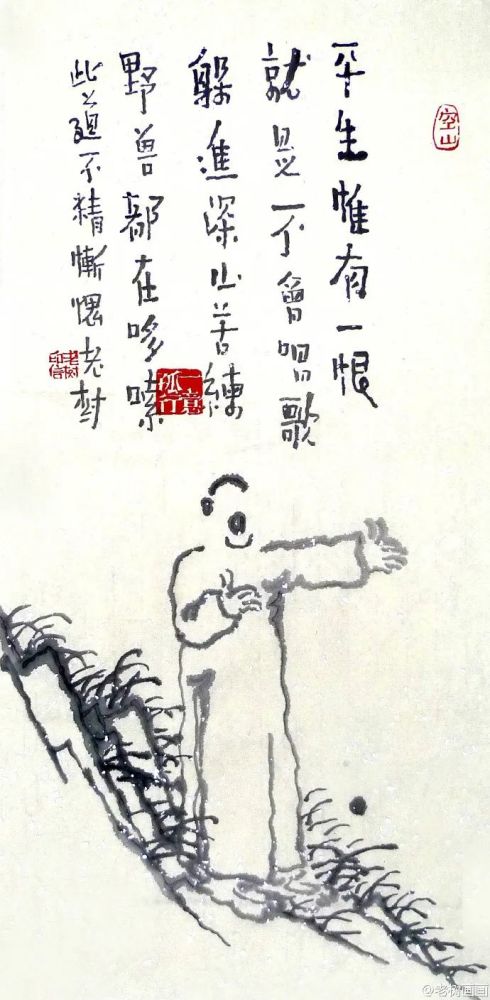 空山
平生惟有一恨
就是不曾唱歌
躲進深山苦練
野兽都在哆嗦
此道不精慚愧老树
一意孤行
老树印信
@老树画画